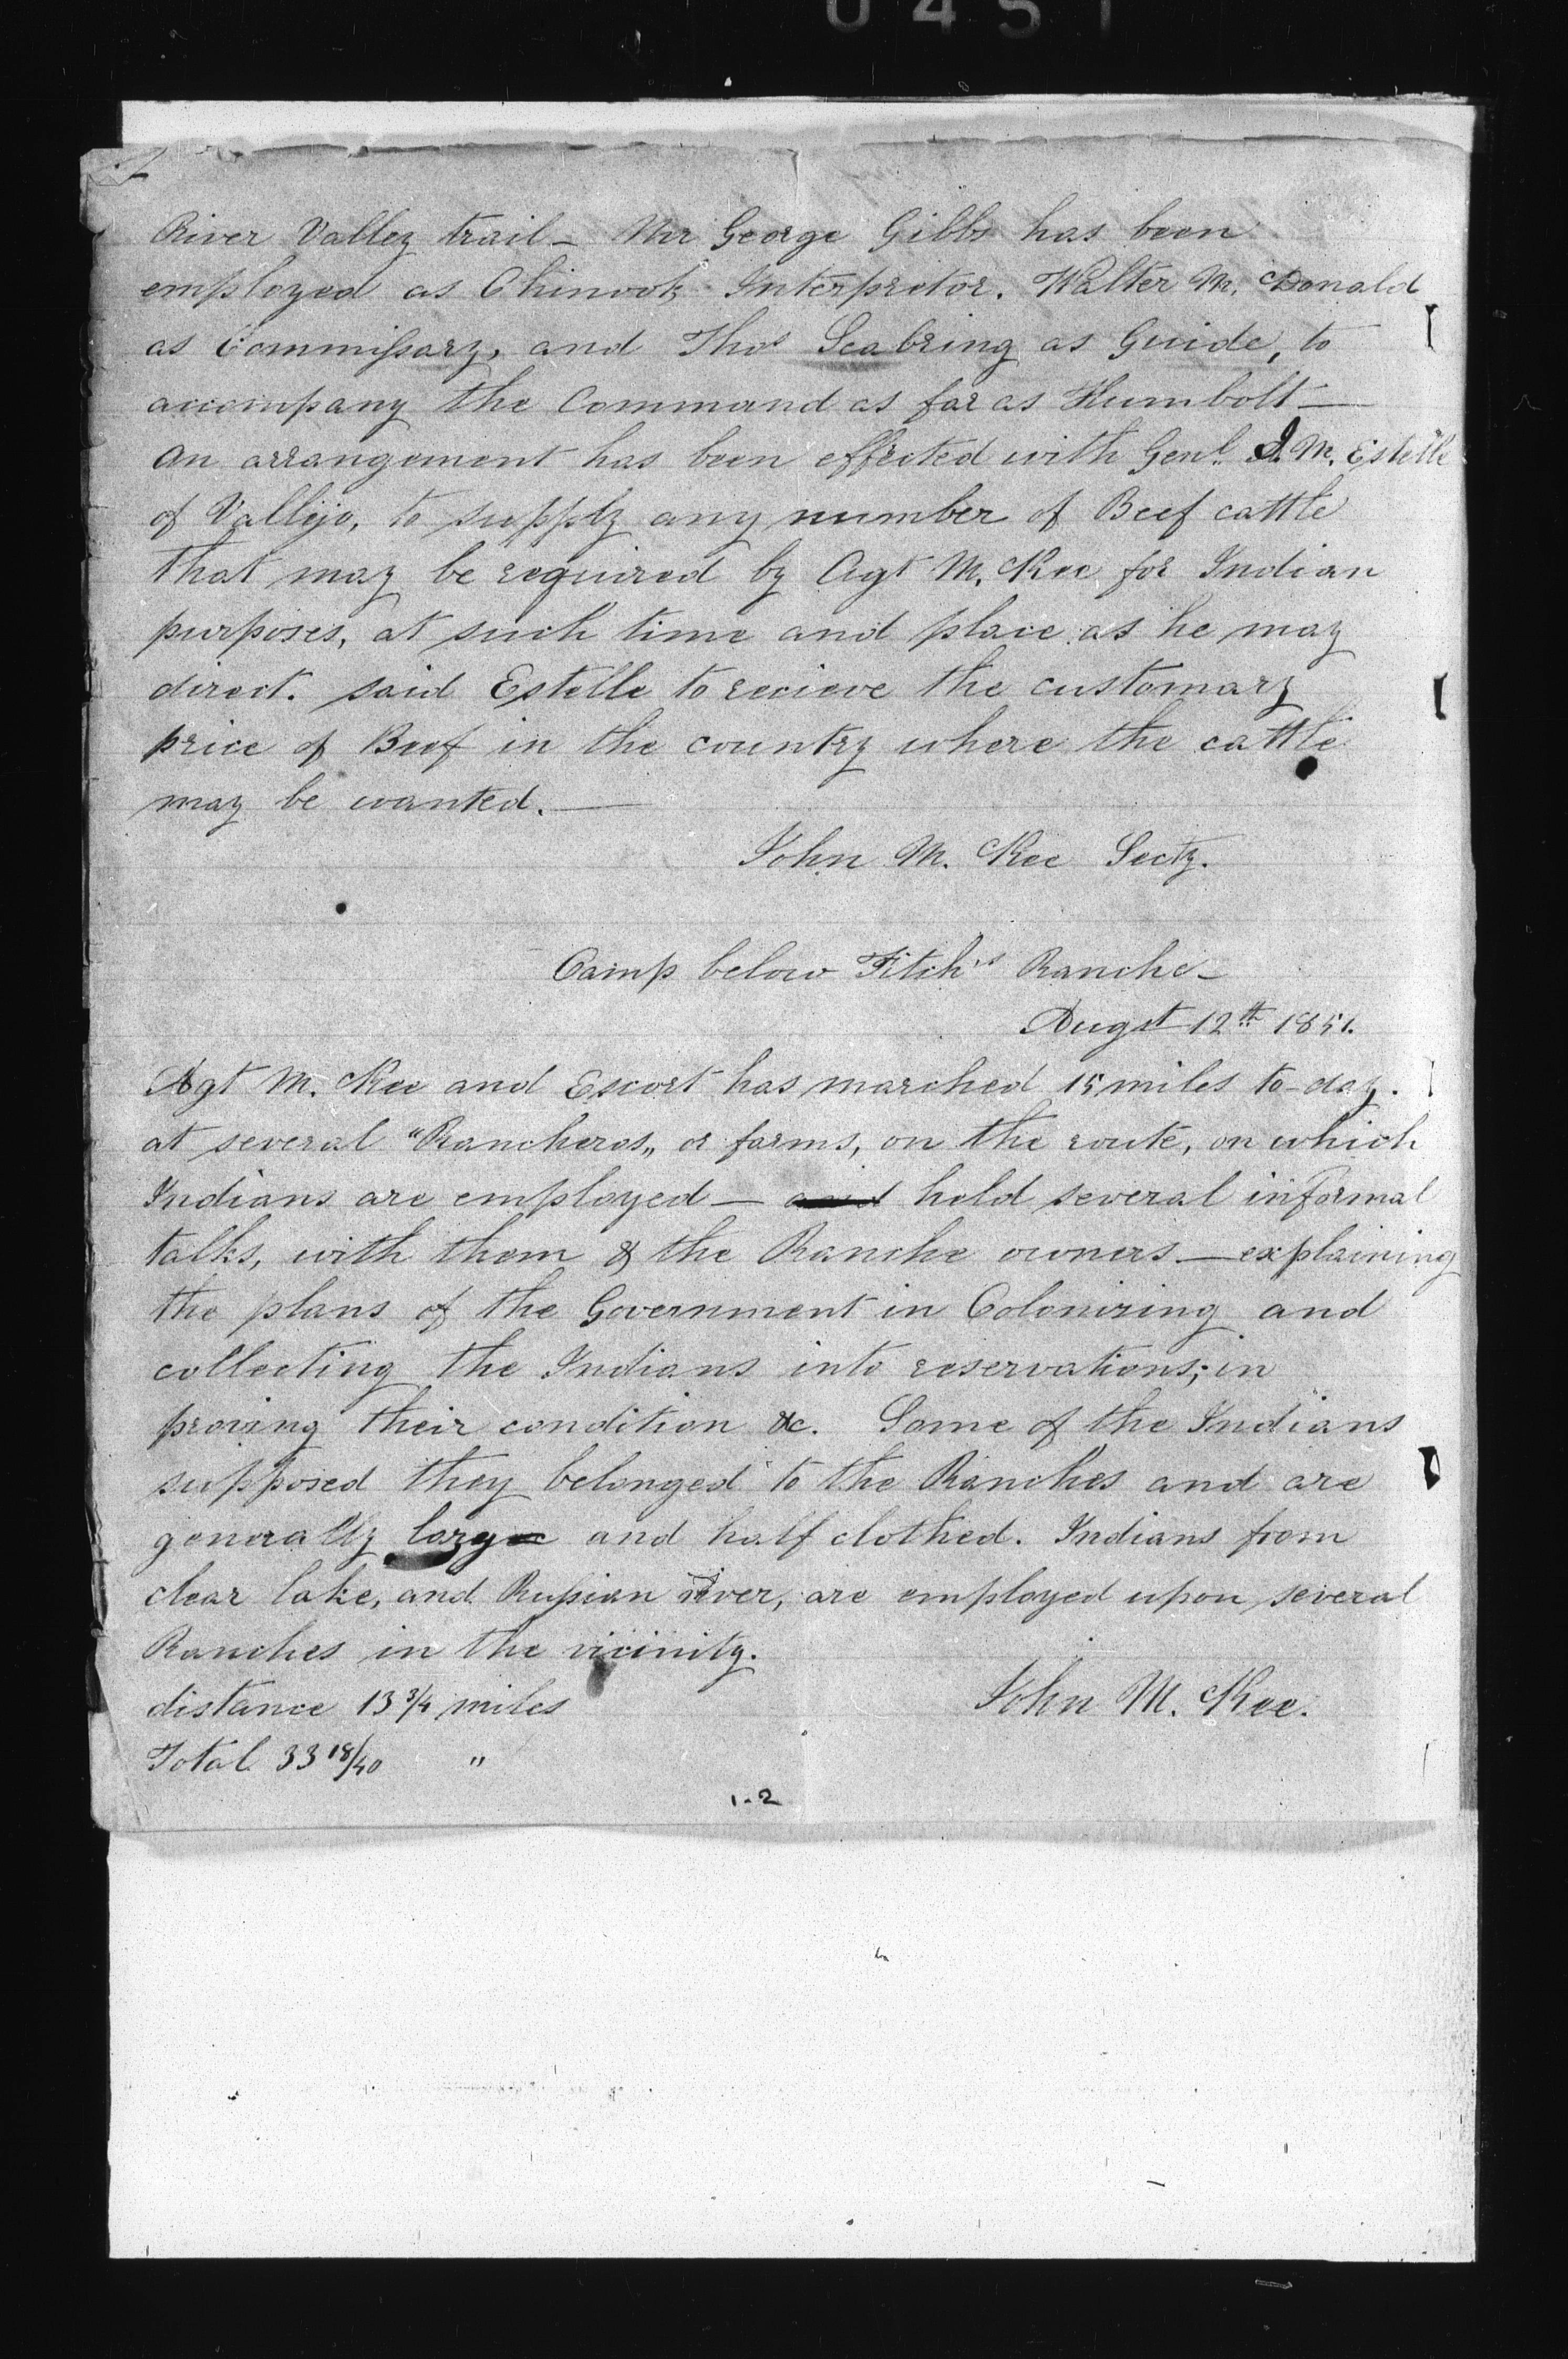 0451
2
River Valley trail - Mr George Gibbs has been
employed as Chinook Interpretor. Walter Mc Donald
as Commissary, and Thos Seabring as Guide, to
accompany the Command as far as Humbolt —
An arrangement has been effected with Genl. J. M. Estelle
of Vallijo, to supply any number of Beef cattle
that may be required by Agt Mc Kee for Indian
purposes, at such time and place as he may
direct. said Estelle to recieve the customary
price of Beef in the country where the cattle
may be wanted. —
John Mc Kee Secty.
Camp below Fitch's Ranche -
Augst 12th 1851.
Agt Mc Kee and Escort has marched 15 miles to-day.
at several "Rancheros„ or farms, on the route, on which
Indians are employed — and held several informal
talks, with them & the Ranche owners — explaining
the plans of the Government in Colonizing and
collecting the Indians into reservations; im
proving their condition &c. Some of the Indians
supposed they belonged to the Ranches and are
generally large and half clothed. Indians from
clear lake, and Russian river, are employed upon several
Ranches in the vicinity.
distance 13 3/4 miles
John Mc Kee.
Total 33 18/40 "
1-2